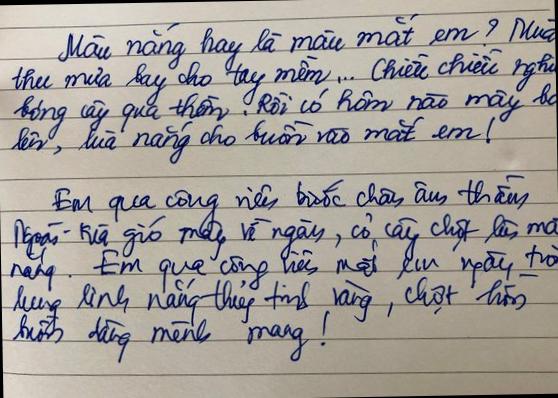 Màu nắng hay là màu mắt em? Mùa
thu mưa bay cho tay mềm... Chiều chiều nghi
bóng cây qua thềm. Rồi có hôm nào mây b
lên, lùa nắng cho buồn vào mắt em!
Em qua công viên bước chân âm thầm
Ngoài kia gió mây về ngàn, cỏ cây chợt lên mà
nàng. Em qua công viên mắt em ngây tro
lung linh nắng thủy tinh vàng, chợt hồn
buồn dâng mênh mang!